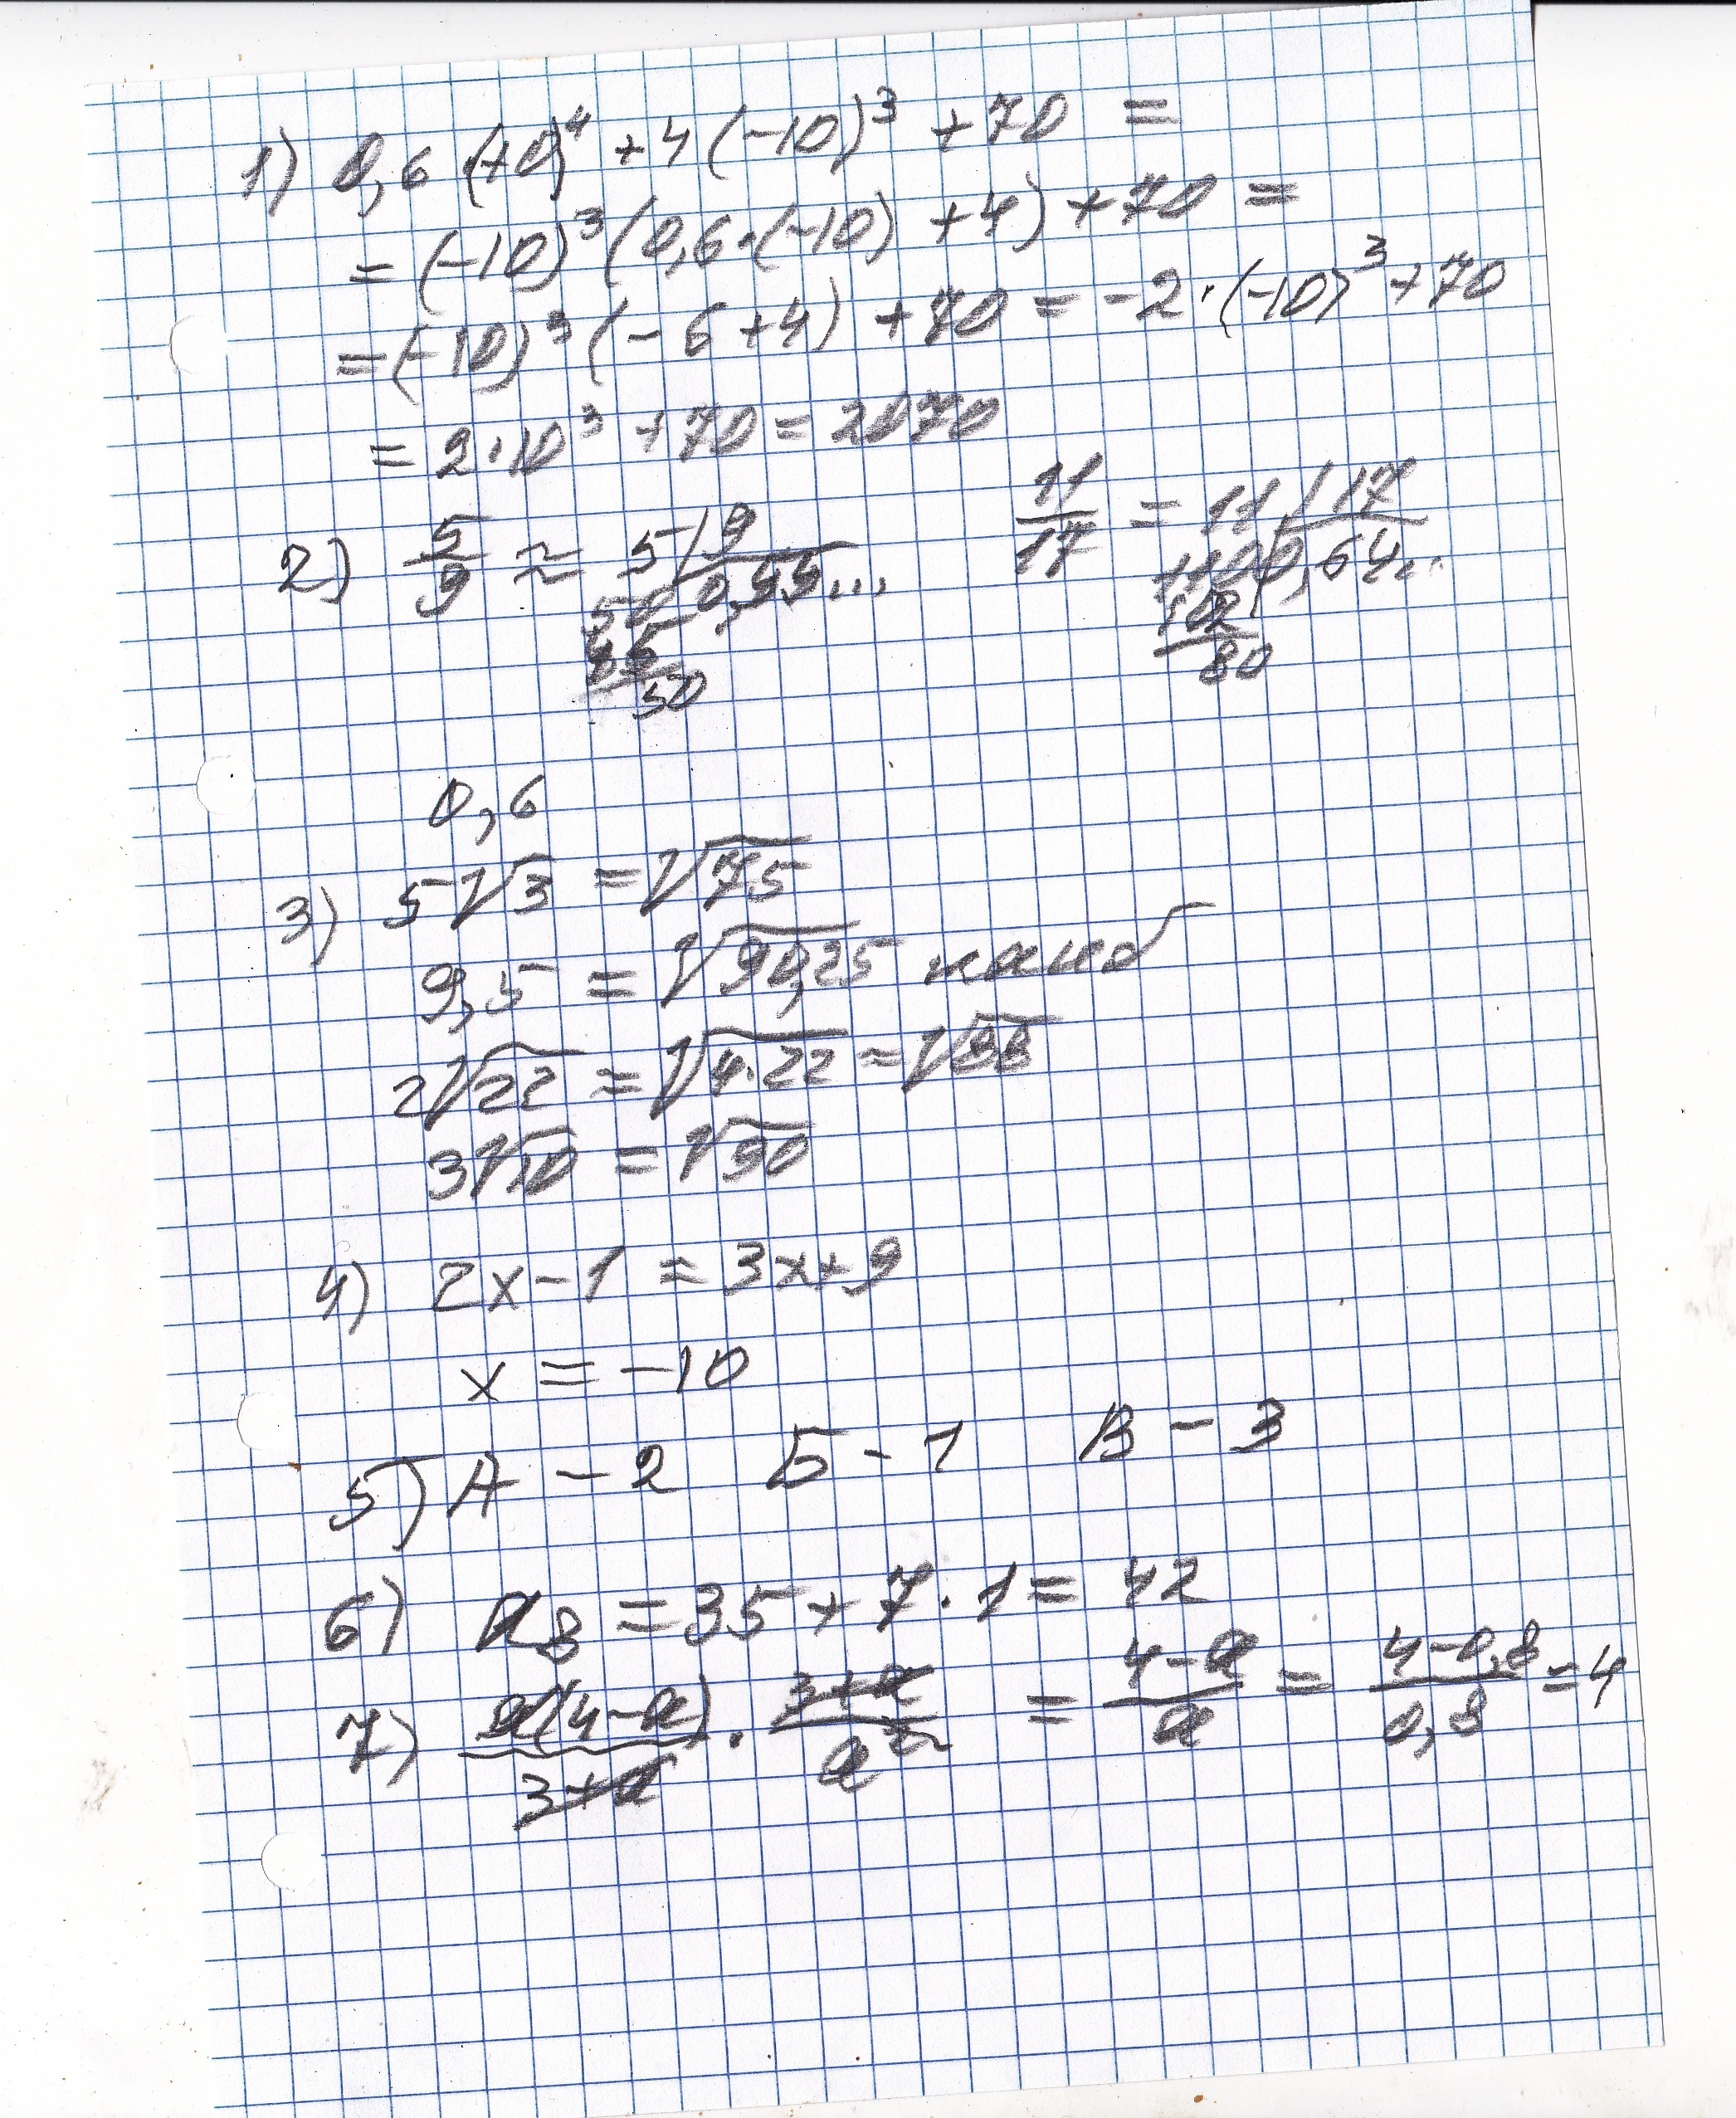 1) 0,6 (-10)⁴ + 4 (-10)³ + 70 =
= (-10)³ (0,6·(-10) + 4) + 70 =
= (-10)³ (-6+4) + 70 = -2·(-10)³ + 70
= 2·10³ + 70 = 2070
2) 5/9 ≈ 5 | 9 11/17 = 11 | 17
50 0,55... 110 0,64..
45 102
50 80
0,6
3) 5√3 = √75
9,5 = √90,25 наиб
2√22 = √4·22 = √88
3√10 = √90
4) 2x - 1 = 3x + 9
x = -10
5) А - 2 Б - 1 В - 3
6) a₈ = 35 + 7·1 = 42
7) a(4-a)/3+a · 3+a/a² = 4-a/a = 4-0,8/0,8 = 4